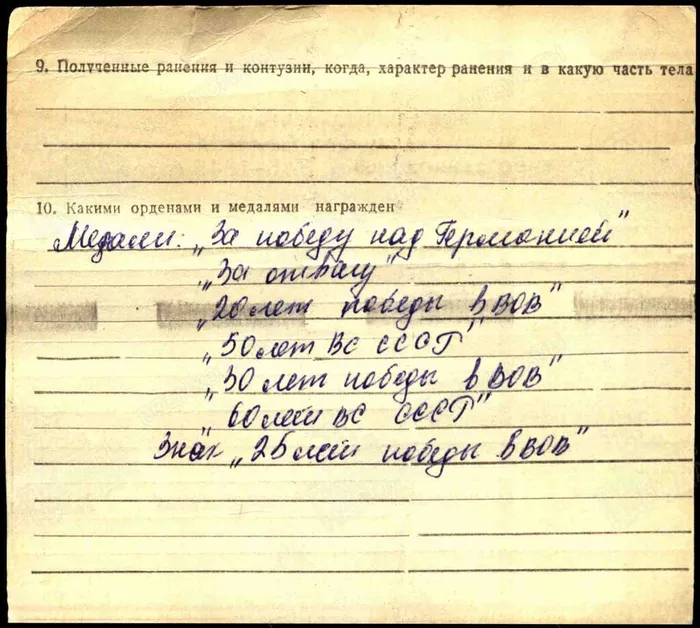 9. Полученные ранения и контузии, когда, характер ранения и в какую часть тела
10. Какими орденами и медалями награжден
Медали: „За победу над Германией"
„За отвагу"
„20 лет победы в ВОВ"
„50 лет ВС СССР"
„30 лет победы в ВОВ"
„60 лет ВС СССР"
Знак „25 лет победы в ВОВ"